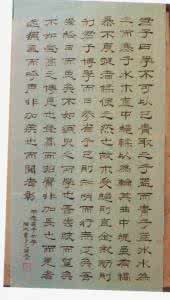 君子曰學不可以已青取之于藍而青于藍冰水為
之而寒于水木直中繩輮以為輪其曲中規雖有槁
暴不復挺者輮使之然也故木受繩則直金就礪則
利君子博學而日參省乎己則知明而行無過矣吾
嘗終日而思矣不如須臾之所學也吾嘗跂而望矣
不如登高之博見也登高而招臂非加長也而見者
遠順風而呼聲非加疾也而聞者彰